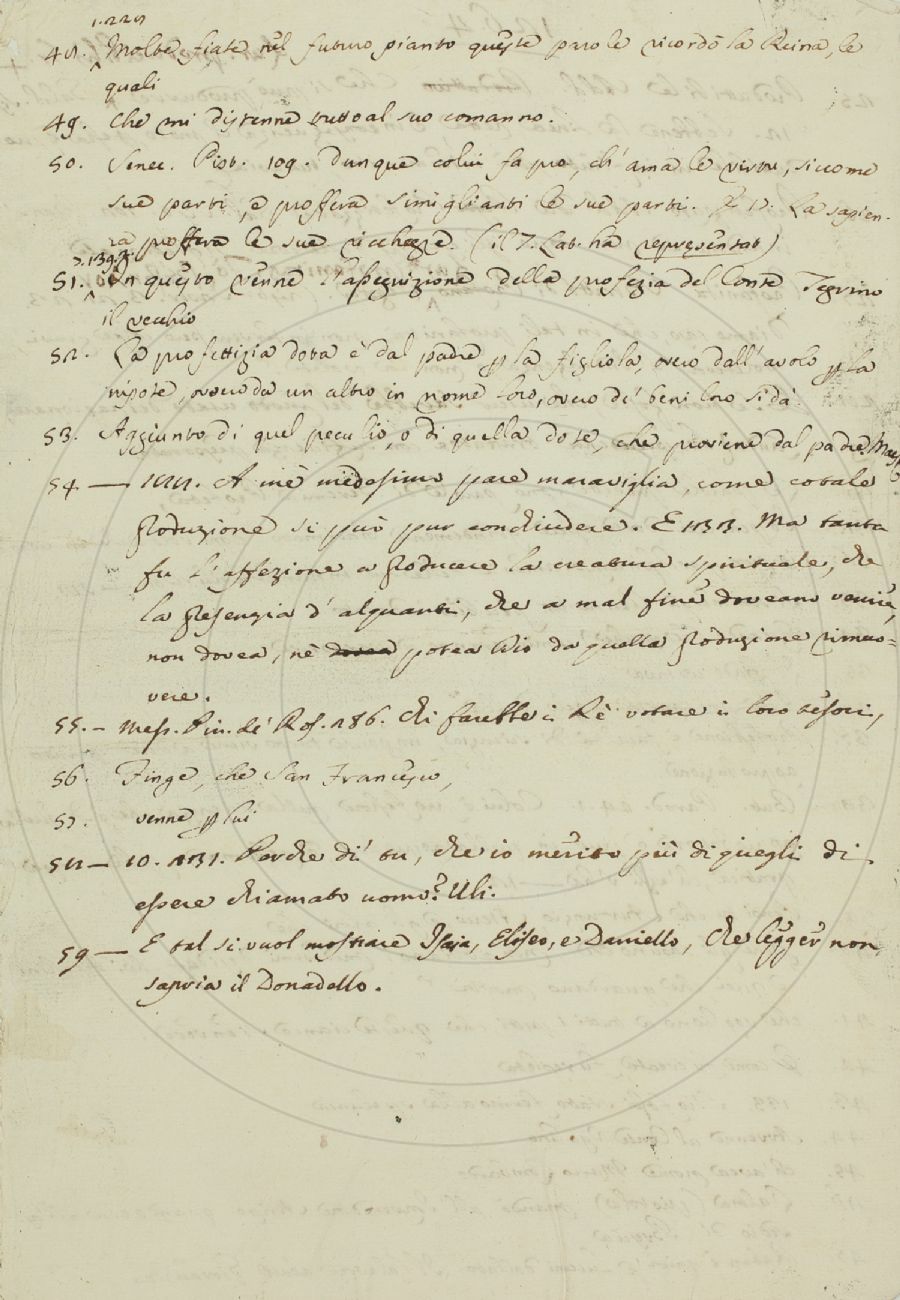 1.225
48. Molte fiate nel futuro pianto queste parole ricordò la Reina, le
quali
49. Che mi distenne tutto al suo comanno.
50. Senec. Pist. 109. Dunque colui fa pro, ch'ama le virtu, siccome
sue parti, e profferà simiglianti le sue parti. La sapien-
za profferà le sue ricchezze. (il 7. Lab. ha representat)
51. In questo venne l'assecuzione della profezia del Conte Tegrino
il vecchio
52. La profettizia dota è dal padre p la figliola, ovvero dall'avolo p la
nipote, ovvero da un altro in nome loro, ovvero de' beni loro si dà.
53. Aggiunto di quel peculio, o di quella dote, che proviene dal padre.
54 — A me medesimo pare maraviglia, come cotale
Produzione si può pur conchiudere. E Ma tanta
fu l'affezione a Producere la creatura spirituale, che
la Presenzia d'alquanti, che a mal fine doveano venire,
non dovea, nè dovea potea Dio da quella Produzione rimuo=
vere.
55. — Mess. Pin. de' Ros. 186. Chi farebbe i Rè votare i loro tesori,
56. Finge, che San Francesco,
57. venne p lui
58 — 10. Perche di' tu, che io merito più di quegli di
essere chiamato uomo? Uli.
59 — E tal si vuol mostrare Isaia, Eliseo, e Daniello, che legger non
sapria il Donadello.